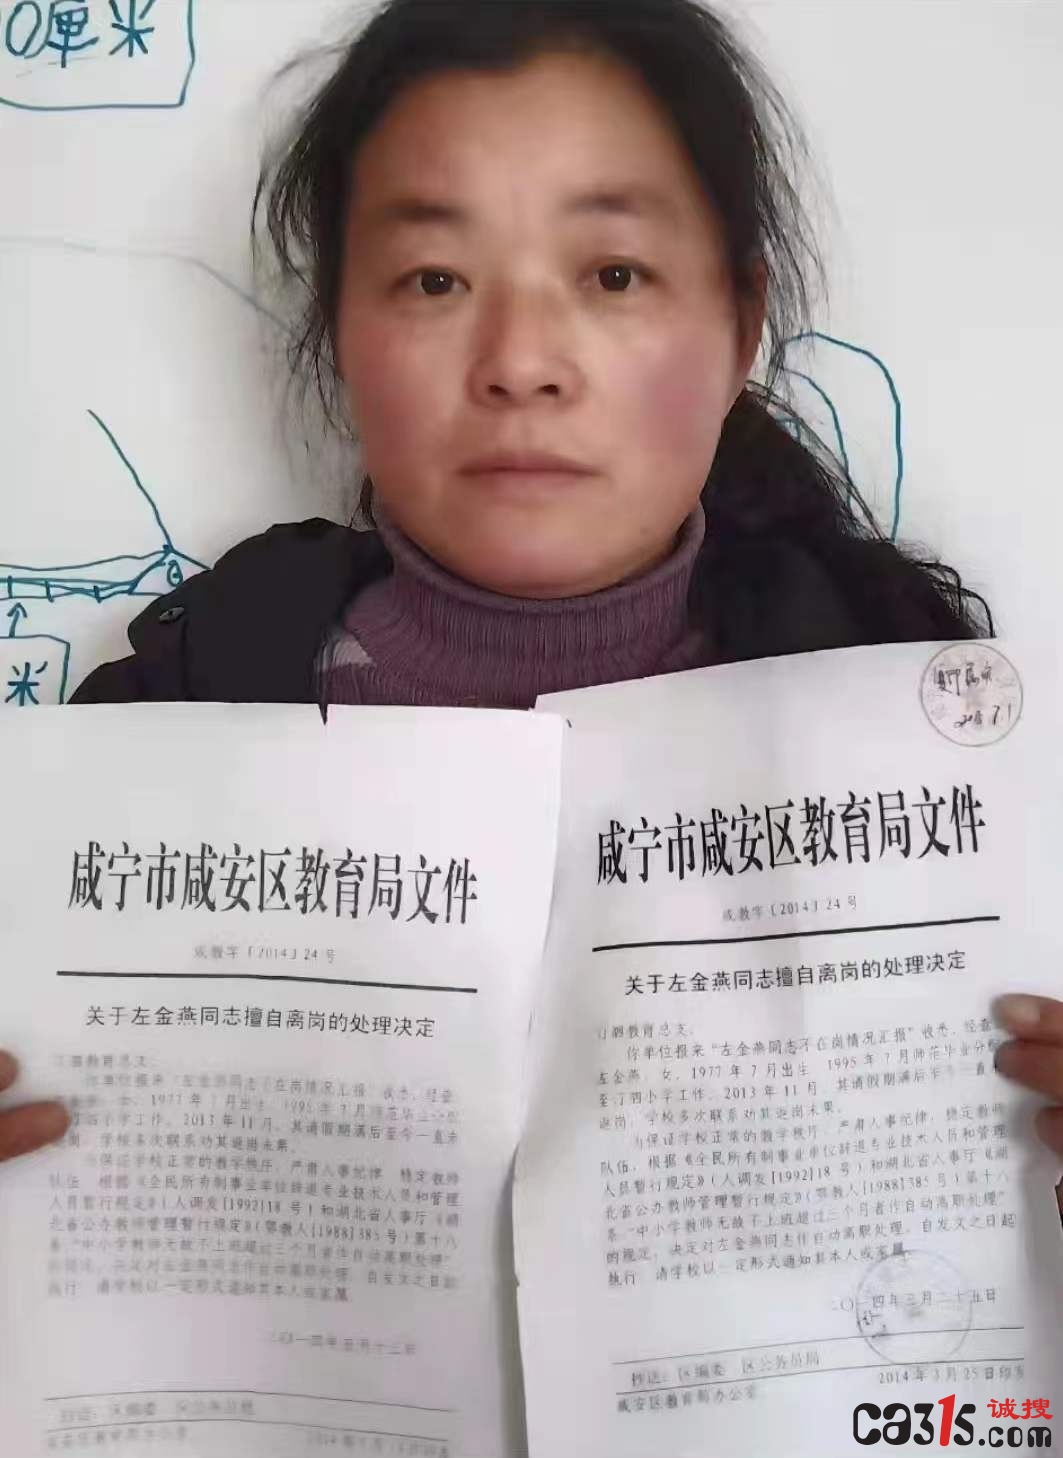 0厘米
米
咸宁市咸安区教育局文件
咸教字〔2014〕24 号
关于左金燕同志擅自离岗的处理决定
汀泗教育总支:
你单位报来"左金燕同志不在岗情况汇报"收悉,经查
女,1977年7月出生 1995年7月师范毕业分配
汀四小学工作。2013年11月,其请假期满后至今一直未
返岗,学校多次联系劝其返岗未果。
为保证学校正常的教学秩序,严肃人事纪律 稳定教师
队伍 根据《全民所有制事业单位辞退专业技术人员和管理
人员暂行规定》(人调发[1992]18 号)和湖北省人事厅《湖
北省公办教师管理暂行规定》(鄂教人[1988]385号)第十八
条"中小学教师无故不上班超过三个月者作自动离职处理"
的规定,决定对左金燕同志作自动离职处理,自发文之日起
执行 请学校以一定形式通知其本人或家属
二〇一四年三月十二日
抄送:区编委
咸安区教育局办公室
复印属实
咸宁市咸安区教育局文件
咸教字〔2014〕24 号
关于左金燕同志擅自离岗的处理决定
汀泗教育总支:
你单位报来"左金燕同志不在岗情况汇报"收悉,经查
左金燕,女,1977年7月出生 1995年7月师范毕业分配
至汀四小学工作,2013年11月,其请假期满后至今一直未
返岗,学校多次联系劝其返岗未果。
为保证学校正常的教学秩序,严肃人事纪律,稳定教师
队伍,根据《全民所有制事业单位辞退专业技术人员和管理
人员暂行规定》(人调发[1992]18 号)和湖北省人事厅《湖
北省公办教师管理暂行规定》(鄂教人[1988]385号)第十八
条"中小学教师无故不上班超过三个月者作自动离职处理"
的规定,决定对左金燕同志作自动离职处理,自发文之日起
执行 请学校以一定形式通知其本人或家属
二〇一四年三月二十五日
抄送:区编委 区公务员局
咸安区教育局办公室 2014年3月25日印发
ca315诚搜.com